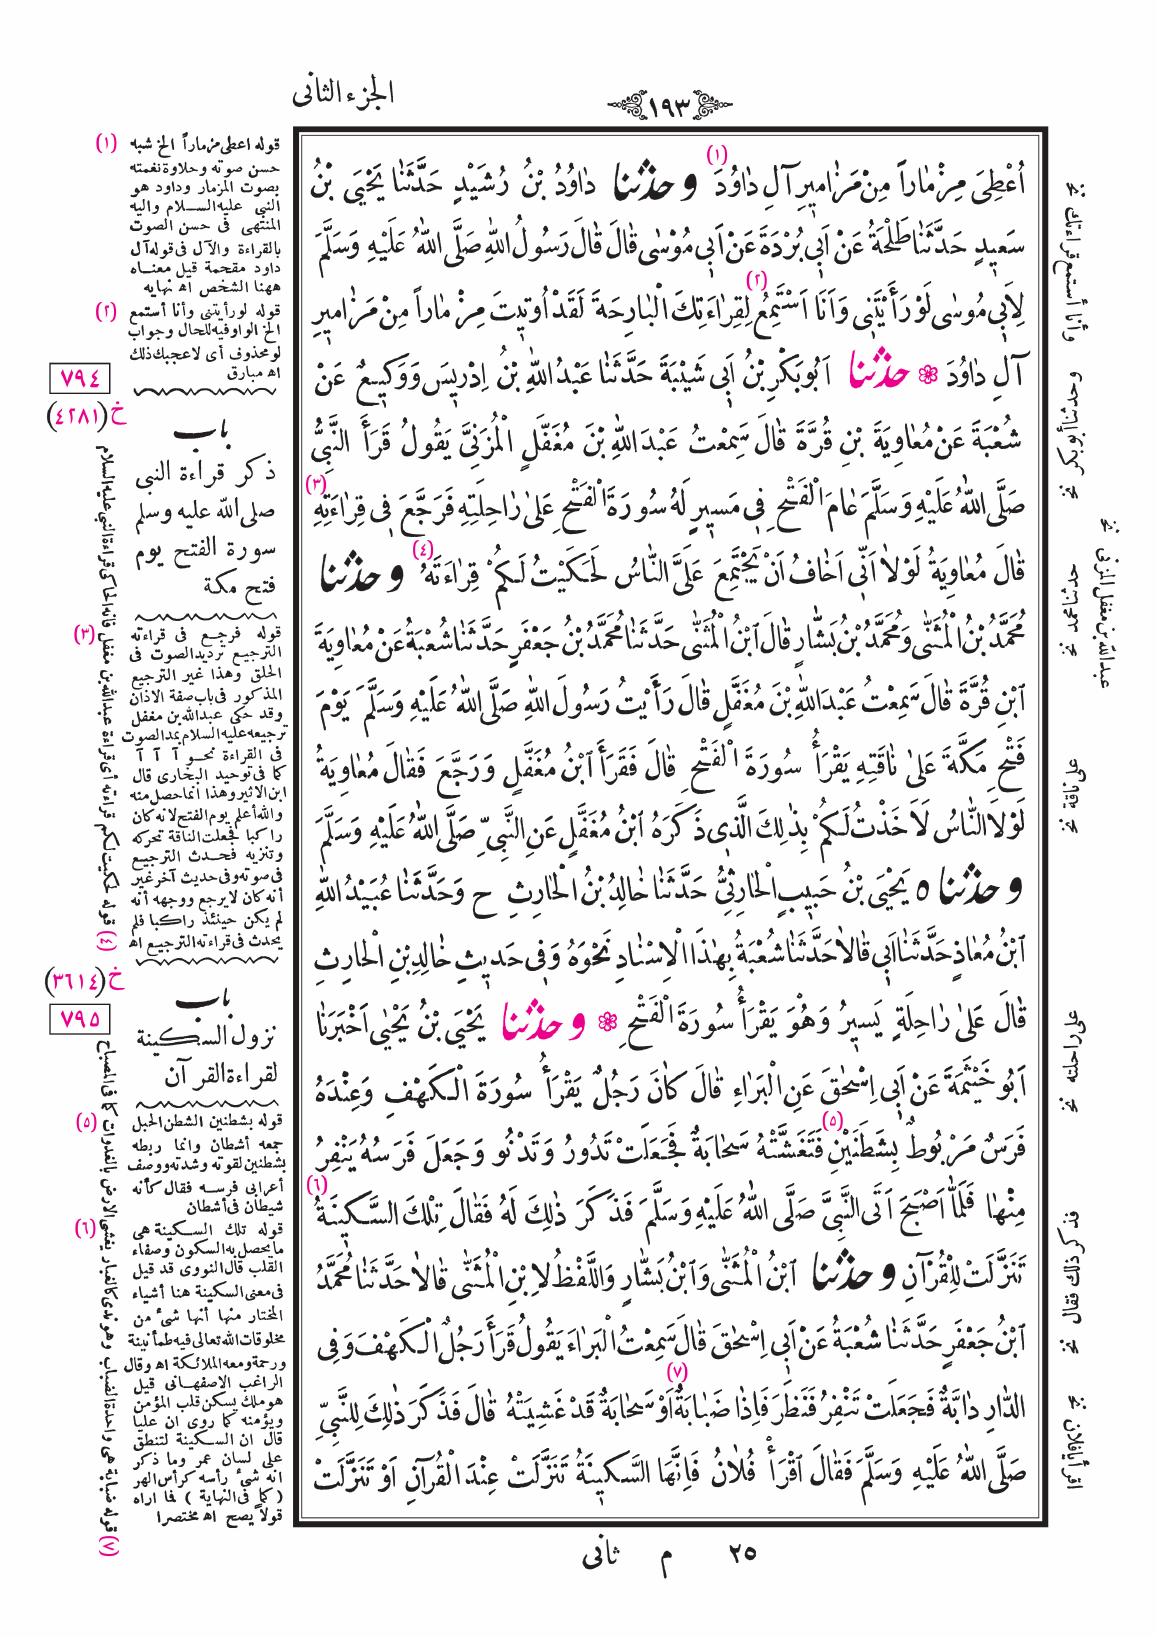 الجزء الثانى
١٩٣
(١)
اُعْطِىَ مِزْمَاراً مِنْ مَزَامِيرِ آلِ دَاوُدَ و حَدَّثَنَا دَاوُدُ بْنُ رُشَيْدٍ حَدَّثَنَا يَحْيَى بْنُ
سَعِيدٍ حَدَّثَنَا طَلْحَةُ عَنْ اَبِى بُرْدَةَ عَنْ اَبِى مُوسٰى قَالَ قَالَ رَسُولُ اللهِ صَلَّى اللهُ عَلَيْهِ وَسَلَّمَ
(٢)
لِاَبِى مُوسٰى لَوْ رَأَيْتَنِى وَاَنَا اَسْتَمِعُ لِقِرَاءَتِكَ الْبَارِحَةَ لَقَدْ اُوتِيتَ مِزْمَاراً مِنْ مَزَامِيرِ
آلِ دَاوُدَ ۞ حَدَّثَنَا اَبُو بَكْرِ بْنُ اَبِى شَيْبَةَ حَدَّثَنَا عَبْدُ اللهِ بْنُ اِدْرِيسَ وَوَكِيعٌ عَنْ
شُعْبَةَ عَنْ مُعَاوِيَةَ بْنِ قُرَّةَ قَالَ سَمِعْتُ عَبْدَ اللهِ بْنَ مُغَفَّلٍ الْمُزَنِىَّ يَقُولُ قَرَأَ النَّبِىُّ
(٣)
صَلَّى اللهُ عَلَيْهِ وَسَلَّمَ عَامَ الْفَتْحِ فِى مَسِيرٍ لَهُ سُورَةَ الْفَتْحِ عَلٰى رَاحِلَتِهِ فَرَجَّعَ فِى قِرَاءَتِهِ
(٤)
قَالَ مُعَاوِيَةُ لَوْلَا اَنِّى اَخَافُ اَنْ يَجْتَمِعَ عَلَىَّ النَّاسُ لَحَكَيْتُ لَكُمْ قِرَاءَتَهُ و حَدَّثَنَا
مُحَمَّدُ بْنُ الْمُثَنّٰى وَمُحَمَّدُ بْنُ بَشَّارٍ قَالَ ابْنُ الْمُثَنّٰى حَدَّثَنَا مُحَمَّدُ بْنُ جَعْفَرٍ حَدَّثَنَا شُعْبَةُ عَنْ مُعَاوِيَةَ
ابْنِ قُرَّةَ قَالَ سَمِعْتُ عَبْدَ اللهِ بْنَ مُغَفَّلٍ قَالَ رَأَيْتُ رَسُولَ اللهِ صَلَّى اللهُ عَلَيْهِ وَسَلَّمَ يَوْمَ
فَتْحِ مَكَّةَ عَلٰى نَاقَتِهِ يَقْرَأُ سُورَةَ الْفَتْحِ قَالَ فَقَرَأَ ابْنُ مُغَفَّلٍ وَرَجَّعَ فَقَالَ مُعَاوِيَةُ
لَوْلَا النَّاسُ لَاَخَذْتُ لَكُمْ بِذٰلِكَ الَّذِى ذَكَرَهُ ابْنُ مُغَفَّلٍ عَنِ النَّبِىِّ صَلَّى اللهُ عَلَيْهِ وَسَلَّمَ
و حَدَّثَنَاه يَحْيَى بْنُ حَبِيبٍ الْحَارِثِىُّ حَدَّثَنَا خَالِدُ بْنُ الْحَارِثِ ح وَحَدَّثَنَا عُبَيْدُ اللهِ
ابْنُ مُعَاذٍ حَدَّثَنَا اَبِى قَالَا حَدَّثَنَا شُعْبَةُ بِهٰذَا الْاِسْنَادِ نَحْوَهُ وَفِى حَدِيثِ خَالِدِ بْنِ الْحَارِثِ
قَالَ عَلٰى رَاحِلَةٍ يَسِيرُ وَهُوَ يَقْرَأُ سُورَةَ الْفَتْحِ ۞ و حَدَّثَنَا يَحْيَى بْنُ يَحْيٰى اَخْبَرَنَا
اَبُو خَيْثَمَةَ عَنْ اَبِى اِسْحٰقَ عَنِ الْبَرَاءِ قَالَ كَانَ رَجُلٌ يَقْرَأُ سُورَةَ الْكَهْفِ وَعِنْدَهُ
(٥)
فَرَسٌ مَرْبُوطٌ بِشَطَنَيْنِ فَتَغَشَّتْهُ سَحَابَةٌ فَجَعَلَتْ تَدُورُ وَتَدْنُو وَجَعَلَ فَرَسُهُ يَنْفِرُ
(٦)
مِنْهَا فَلَمَّا اَصْبَحَ اَتَى النَّبِىَّ صَلَّى اللهُ عَلَيْهِ وَسَلَّمَ فَذَكَرَ ذٰلِكَ لَهُ فَقَالَ تِلْكَ السَّكِينَةُ
تَنَزَّلَتْ لِلْقُرْآنِ و حَدَّثَنَا ابْنُ الْمُثَنّٰى وَابْنُ بَشَّارٍ وَاللَّفْظُ لِابْنِ الْمُثَنّٰى قَالَا حَدَّثَنَا مُحَمَّدُ
ابْنُ جَعْفَرٍ حَدَّثَنَا شُعْبَةُ عَنْ اَبِى اِسْحٰقَ قَالَ سَمِعْتُ الْبَرَاءَ يَقُولُ قَرَأَ رَجُلٌ الْكَهْفَ وَفِى
(٧)
الدَّارِ دَابَّةٌ فَجَعَلَتْ تَنْفِرُ فَنَظَرَ فَاِذَا ضَبَابَةٌ اَوْ سَحَابَةٌ قَدْ غَشِيَتْهُ قَالَ فَذَكَرَ ذٰلِكَ لِلنَّبِىِّ
صَلَّى اللهُ عَلَيْهِ وَسَلَّمَ فَقَالَ اقْرَأْ فُلَانُ فَاِنَّهَا السَّكِينَةُ تَنَزَّلَتْ عِنْدَ الْقُرْآنِ اَوْ تَنَزَّلَتْ
٢٥ م ثانى
وأنا أستمع قراءتك نخ
وحدثنا أبو بكر نخ
عبدالله بن مغفل المزنى نخ
حدثنا محمد نخ
على ناقة نخ
على راحلته نخ
فذكر ذلك فقال نخ
اقرأ يافلان نخ
(١) قوله اعطى مزماراً الخ شبه
حسن صوته وحلاوة نغمته
بصوت المزمار وداود هو
النبى عليه السلام واليه
المنتهى فى حسن الصوت
بالقراءة والآل فى قوله آل
داود مقحمة قيل معناه
ههنا الشخص اه نهايه
(٢) قوله لو رأيتنى وأنا أستمع
الخ الواو فيه للحال وجواب
لو محذوف أى لاعجبك ذلك
اه مبارق
٧٩٤
خ (٤٢٨١)
باب
ذكر قراءة النبى
صلى الله عليه وسلم
سورة الفتح يوم
فتح مكة
(٣) قوله فرجع فى قراءته
الترجيع ترديد الصوت فى
الحلق وهذا غير الترجيع
المذكور فى باب صفة الاذان
وقد حكى عبدالله بن مغفل
ترجيعه عليه السلام بمد الصوت
فى القراءة نحو آ آ آ
كما فى توحيد البخارى قال
ابن الاثير وهذا انما حصل منه
والله أعلم يوم الفتح لانه كان
راكبا فجعلت الناقة تحركه
وتنزيه فحدث الترجيع
فى صوته وفى حديث آخر غير
أنه كان لا يرجع ووجهه أنه
لم يكن حينئذ راكبا فلم
يحدث فى قراءته الترجيع اه
(٤) قوله لحكيت لكم قراءته أى قراءة عبدالله بن مغفل فانه الحاكى قراءة النبى عليه السلام
خ (٣٦١٤)
٧٩٥
باب
نزول السكينة
لقراءة القرآن
(٥) قوله بشطنين الشطن الحبل
جمعه أشطان وانما ربطه
بشطنين لقوته وشدته ووصف
أعرابى فرسه فقال كأنه
شيطان فى أشطان
(٦) قوله تلك السكينة هى
ما يحصل به السكون وصفاء
القلب قال النووى قد قيل
فى معنى السكينة هنا أشياء
المختار منها أنها شىء من
مخلوقات الله تعالى فيه طمأنينة
ورحمة ومعه الملائكة اه وقال
الراغب الاصفهانى قيل
هو ملك يسكن قلب المؤمن
ويؤمنه كما روى ان عليا
قال ان السكينة لتنطق
على لسان عمر وما ذكر
انه شىء رأسه كرأس الهر
(كما فى النهاية) فما اراه
قولا يصح اه مختصرا
(٧) قوله ضبابة هى واحدة الضباب وهو ندى كالغبار يغشى الارض بالغدوات كما فى المصباح